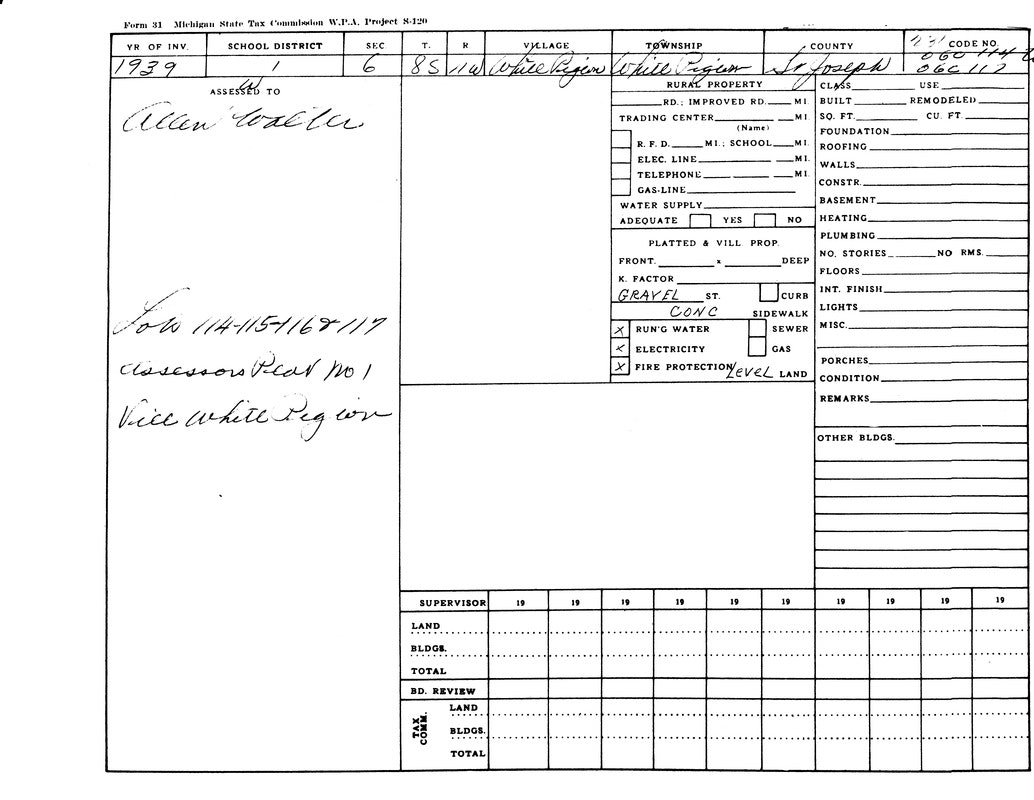 Form 31 Michigan State Tax Commission W.P.A. Project S-120
YR OF INV. SCHOOL DISTRICT SEC T. R VILLAGE TOWNSHIP COUNTY CODE NO.
1939 1 6 8S 11W White Pigion White Pigion St Joseph
060 114
060 117
ASSESSED TO
Allen Walter
Lots 114-115-116 & 117
Assessors Plat No 1
Vill White Pigion
RURAL PROPERTY
RD.; IMPROVED RD. MI.
TRADING CENTER MI.
(Name)
R. F. D. MI.; SCHOOL MI.
ELEC. LINE MI.
TELEPHONE MI.
GAS-LINE
WATER SUPPLY
ADEQUATE YES NO
PLATTED & VILL PROP.
FRONT. x DEEP
K. FACTOR
GRAVEL ST. CURB
CONC SIDEWALK
X RUN'G WATER SEWER
X ELECTRICITY GAS
X FIRE PROTECTION LEVEL LAND
CLASS USE
BUILT REMODELED
SQ. FT. CU. FT.
FOUNDATION
ROOFING
WALLS
CONSTR.
BASEMENT
HEATING
PLUMBING
NO. STORIES NO RMS.
FLOORS
INT. FINISH
LIGHTS
MISC.
PORCHES
CONDITION
REMARKS
OTHER BLDGS.
SUPERVISOR 19 19 19 19 19 19 19 19 19 19
LAND
BLDGS.
TOTAL
BD. REVIEW
TAX COMM.
LAND
BLDGS.
TOTAL